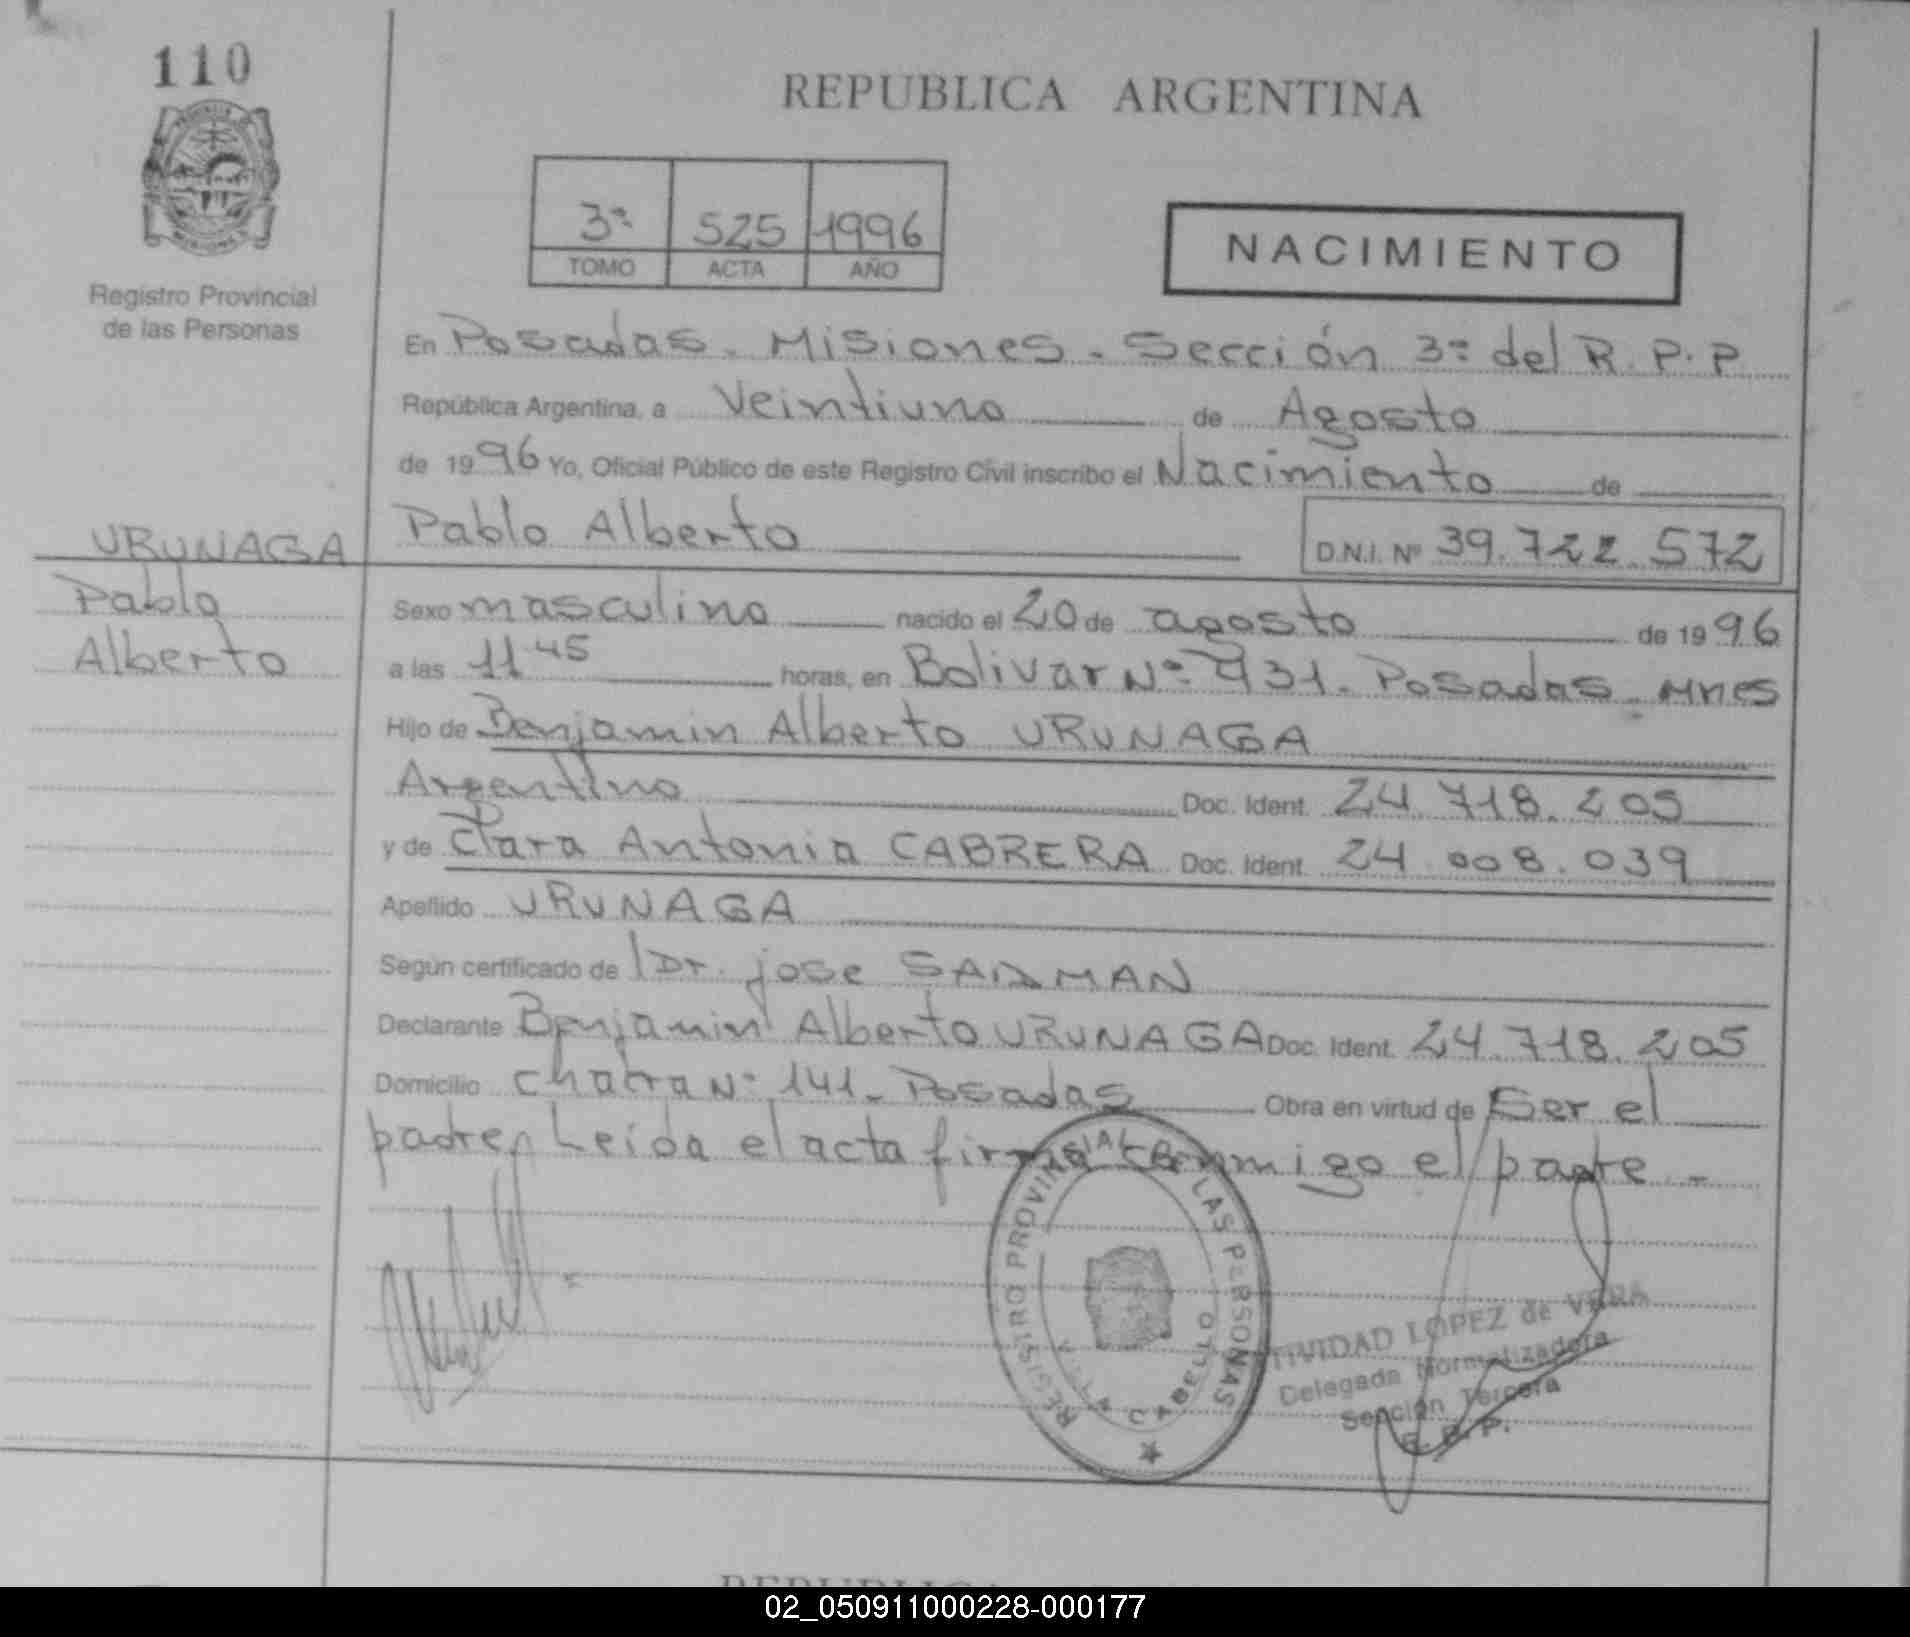 110
REPUBLICA ARGENTINA
3ª 525 1996
TOMO ACTA AÑO
NACIMIENTO
Registro Provincial
de las Personas
En Posadas - Misiones - Sección 3ª del R.P.P
República Argentina, a Veintiuno de Agosto
de 1996 Yo, Oficial Público de este Registro Civil inscribo el Nacimiento de
URUNAGA
Pablo
Alberto
Pablo Alberto D.N.I. Nº 39.722.572
Sexo masculino nacido el 20 de agosto de 1996
a las 11 45 horas, en Bolivar Nº 931. Posadas - Mnes
Hijo de Benjamin Alberto URUNAGA
Argentino Doc. Ident. 24.718.205
y de Clara Antonia CABRERA Doc. Ident. 24.008.039
Apellido URUNAGA
Según certificado de Dr. jose
Declarante Benjamin Alberto URUNAGA Doc. Ident. 24.718.205
Domicilio chacra Nº 141 - Posadas Obra en virtud de Ser el
padre, Leida el acta firma conmigo el padre -
REGISTRO PROVINCIAL DE LAS PERSONAS
LOPEZ de VERA
Delegada Normalizadora
Sección Tercera
R. P. P.
02_050911000228-000177